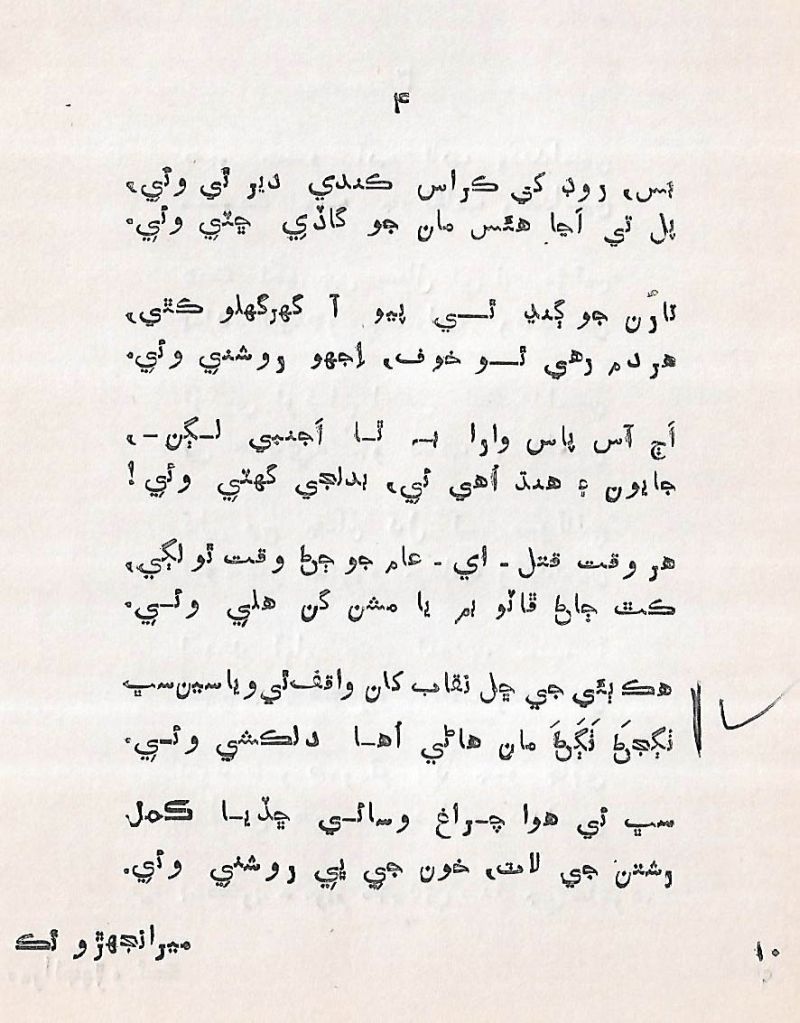 ۴
بس، روڊ کي ڪراس ڪندي دير ٿي وئي،
پل تي اَچا هئس مان جو گاڏي ڇٽي وئي.
تارُن جو ڳنڍ ئي پيو آ گهرگهلو ڪٿي،
هر دم رهي ٿو خوف، اِجهو روشني وئي.
اَڄ آس پاس وارا به ٿا اَجنبي لڳن -،
جايون ۽ هنڌ اُهي ئي، بدلجي گهٽي وئي!
هر وقت قتل - اي - عام جو ڄڻ وقت ٿو لڳي،
ڪٿ ڄاڻ ڦاٽو بم يا مشن گن هلي وئي.
هڪ ٻئي جي ڇل نقاب کان واقف ٿي وياسين سڀ
ٺڳجڻ ٺڳڻ مان هاڻي اُها دلڪشي وئي.
سڀ ئي هوا چراغ وسائي ڇڏيا ڪمل
رشتن جي لاٽ، خون جي ڀي روشني وئي.
۱۰
ميرانجهڙو ٿڪ